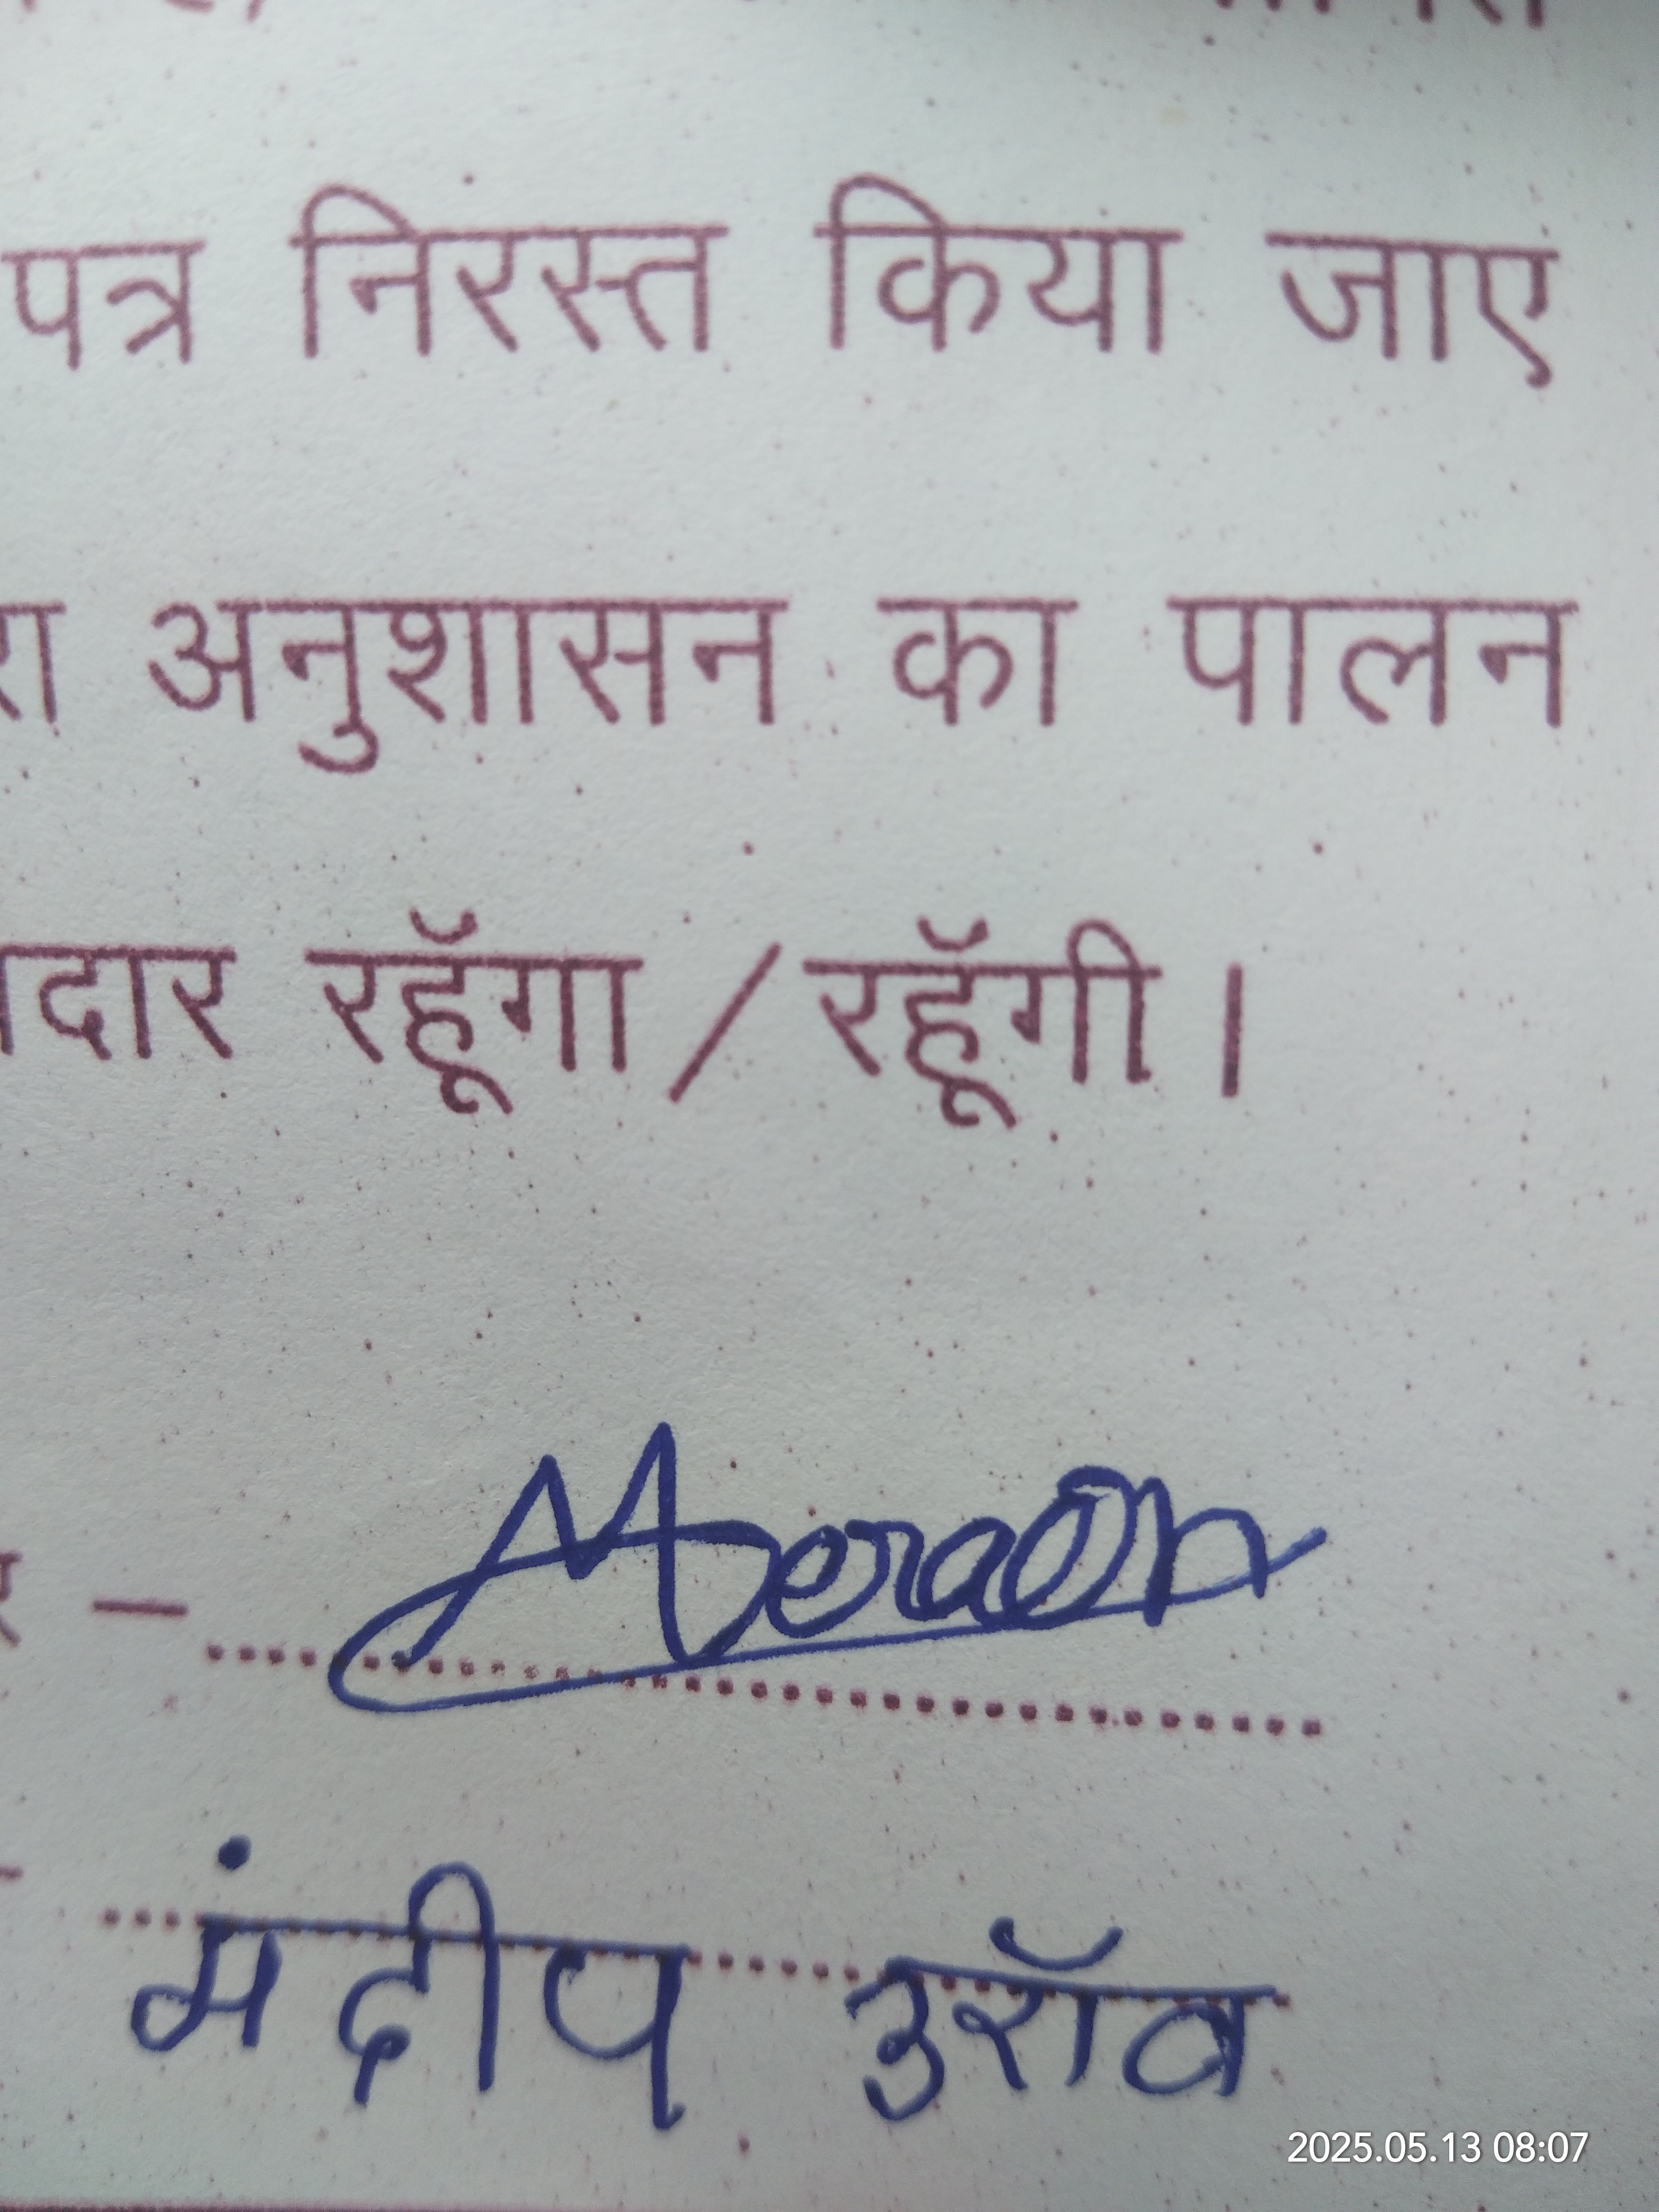 पत्र निरस्त किया जाए
अनुशासन का पालन
रहूॅगा / रहूॅगी ।
–
मंदीप उरॉव
2025.05.13 08:07